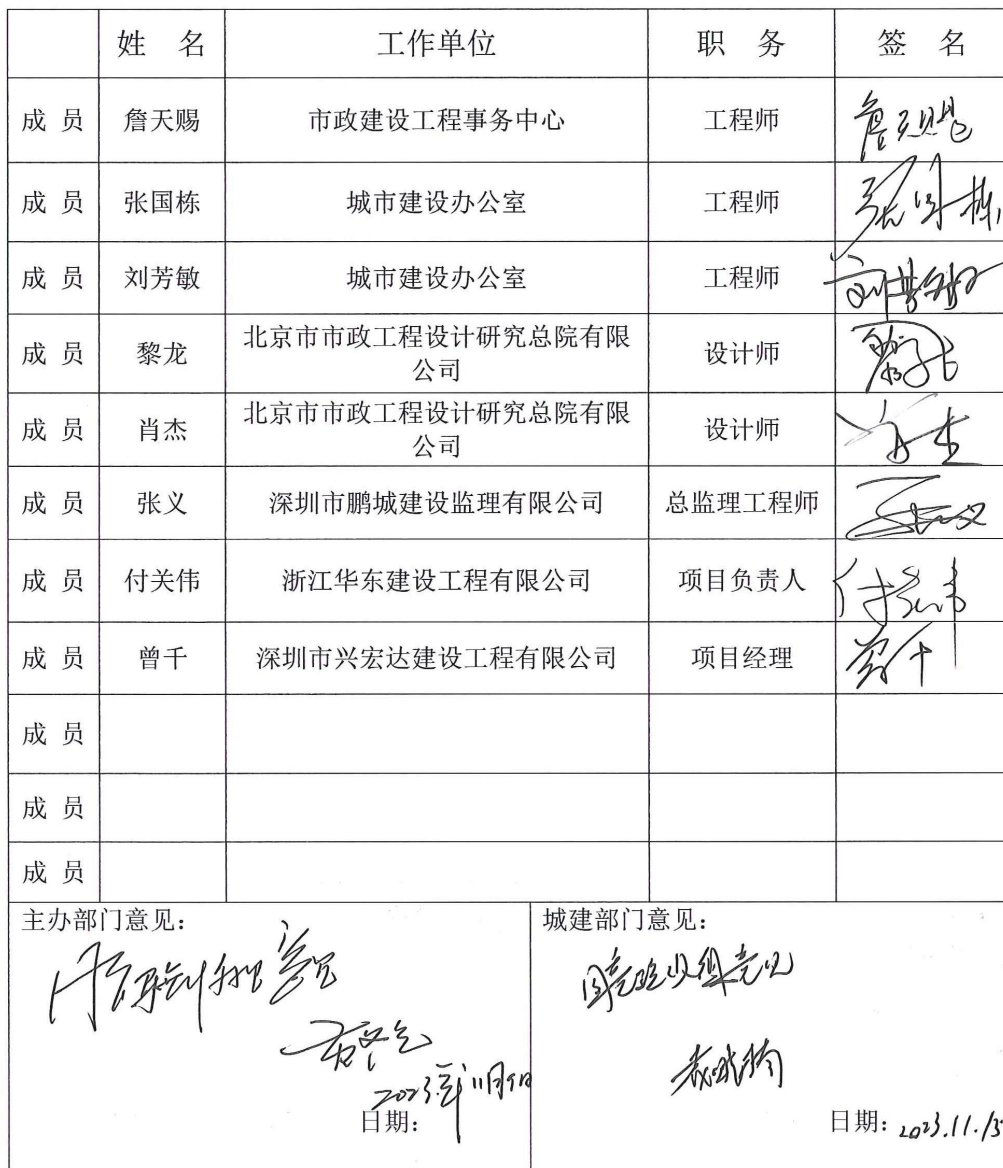 姓 名 工作单位 职 务 签 名
成 员 詹天赐 市政建设工程事务中心 工程师 詹天赐
成 员 张国栋 城市建设办公室 工程师 张国栋
成 员 刘芳敏 城市建设办公室 工程师 刘芳敏
成 员 黎龙 北京市市政工程设计研究总院有限
公司 设计师 黎龙
成 员 肖杰 北京市市政工程设计研究总院有限
公司 设计师 肖杰
成 员 张义 深圳市鹏城建设监理有限公司 总监理工程师 张义
成 员 付关伟 浙江华东建设工程有限公司 项目负责人 付关伟
成 员 曾千 深圳市兴宏达建设工程有限公司 项目经理 曾千
成 员
成 员
成 员
主办部门意见:
2023年11月9日
日期:
城建部门意见:
同意验收组意见
日期: 2023.11.13